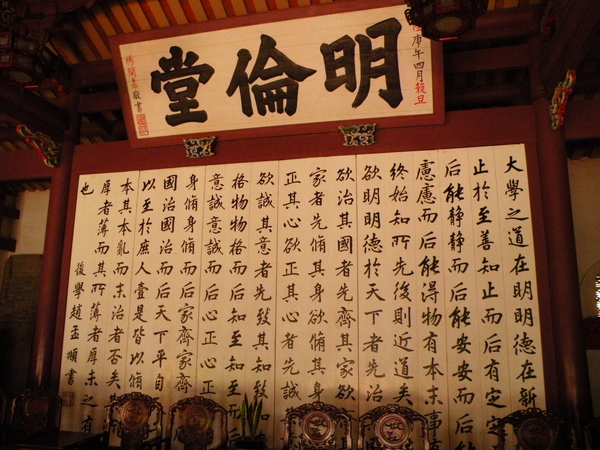 明倫堂
庚午四月穀旦
敬書
大學之道在明明德在新
止於至善知止而后有定定
后能靜靜而后能安安而后
慮慮而后能得物有本末事有
終始知所先後則近道矣
欲明明德於天下者先治
欲治其國者先齊其家欲
家者先脩其身欲脩其身
正其心欲正其心者先誠
欲誠其意者先致其知
格物物格而后知至知至而后
意誠意誠而后心正心正
身脩身脩而后家齊家齊
國治國治而后天下平自天
以至於庶人壹是皆以脩
本其本亂而末治者否矣其
厚者薄而其所薄者厚未之有
也
後學趙孟頫書